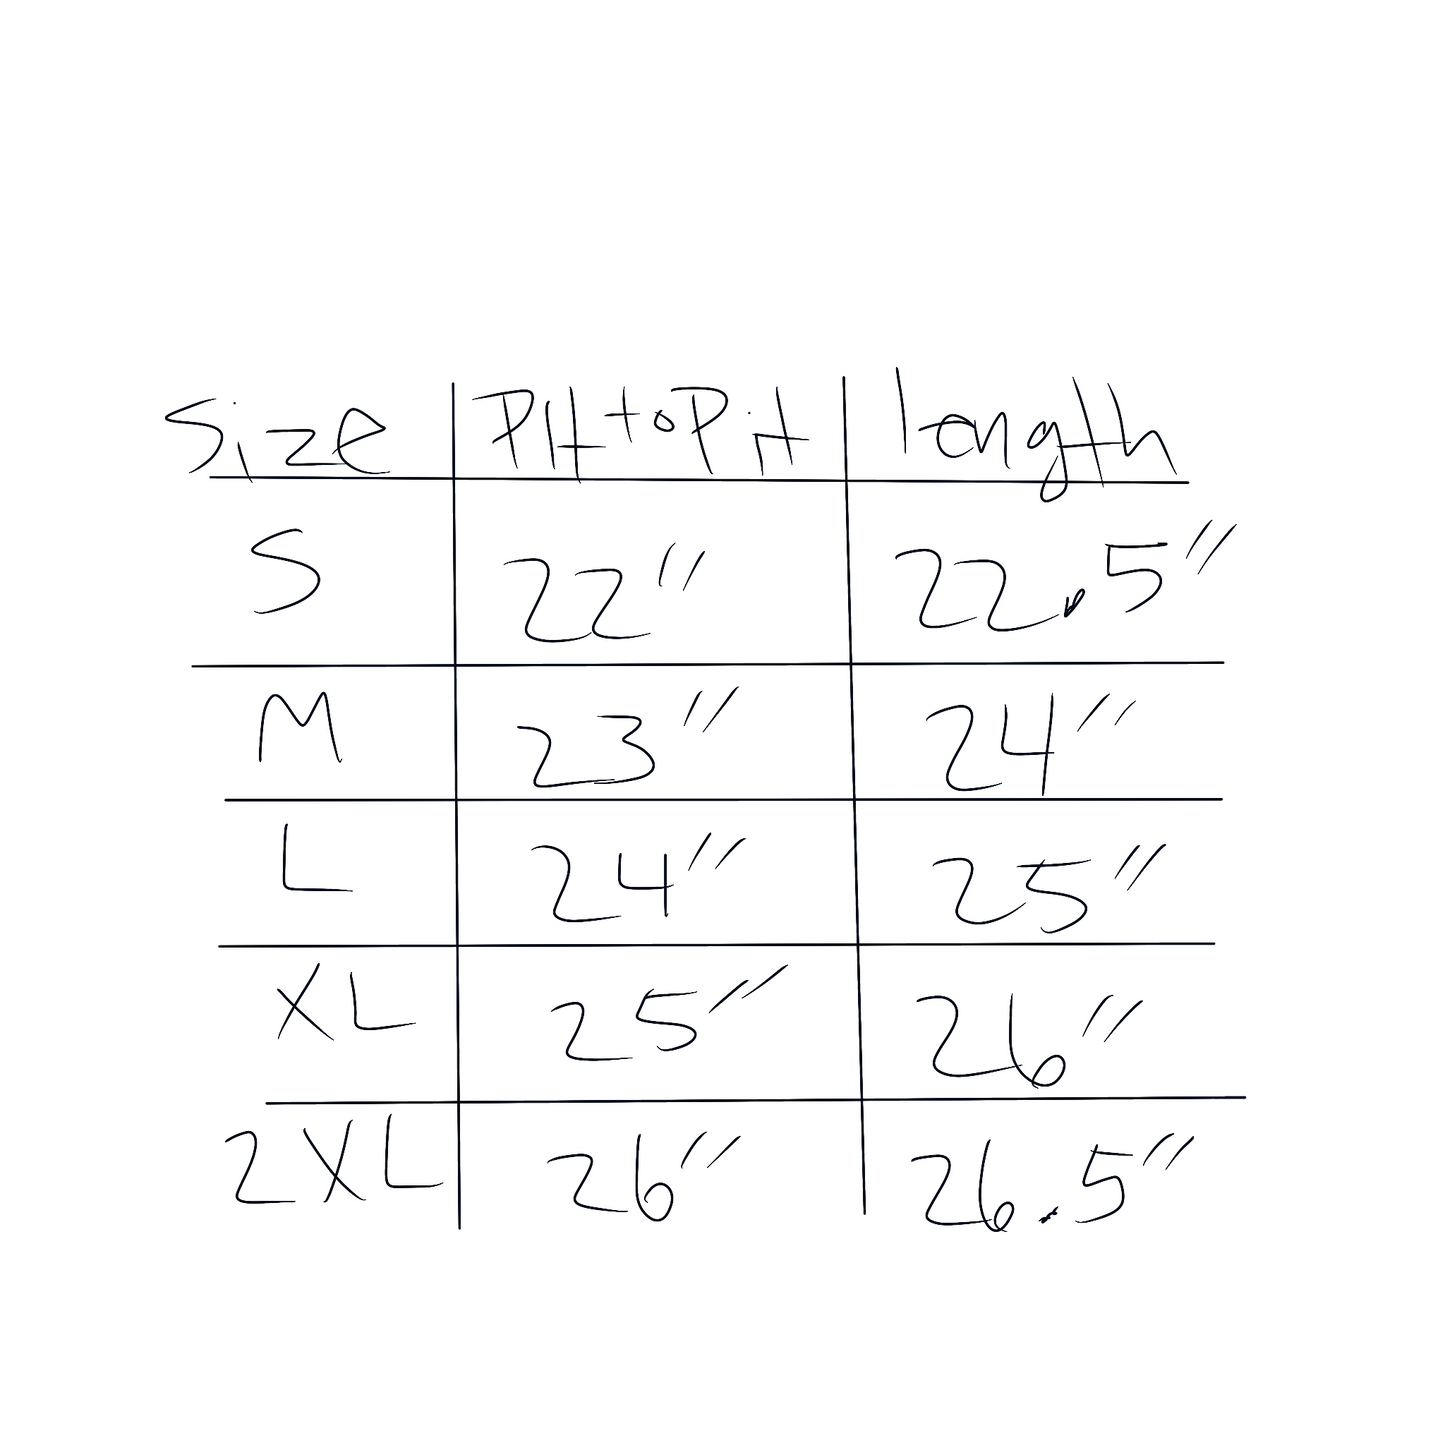 Size Pit to Pit length
S 22" 22.5"
M 23" 24"
L 24" 25"
XL 25" 26"
2XL 26" 26.5"